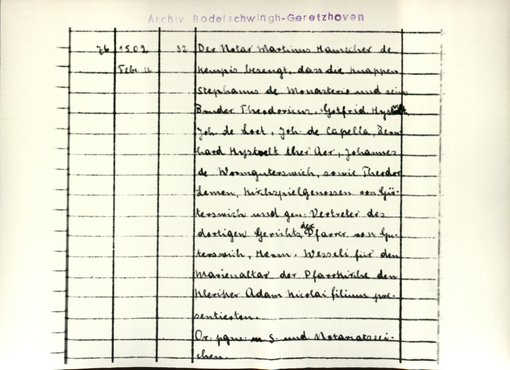 Archiv Bodelschwingh-Geretzhoven
76 1502 32 Der Notar Martinus Hanscher de
Febr. 11 Kempis bezeugt, dass die Knappen
Stephanus de Monasterio und sein
Bruder Theodoricus, Gotfrid
Joh. de Loot, Joh. de Capella, Bern
hard Hystvelt ther Aer, Johannes
de sowie Theodor
Lemen, Kirchspielgenossen von Gü-
terswich und gen. Vertreter des
dortigen Gerichts, der Pfarrer von Gu-
terswich, Herm. Wesseli für den
Marienaltar der Pfarrkirche den
Kleriker Adam Nicolai filium prä-
sentierten.
Or. pgm. m S. und Notariatszei-
chen.